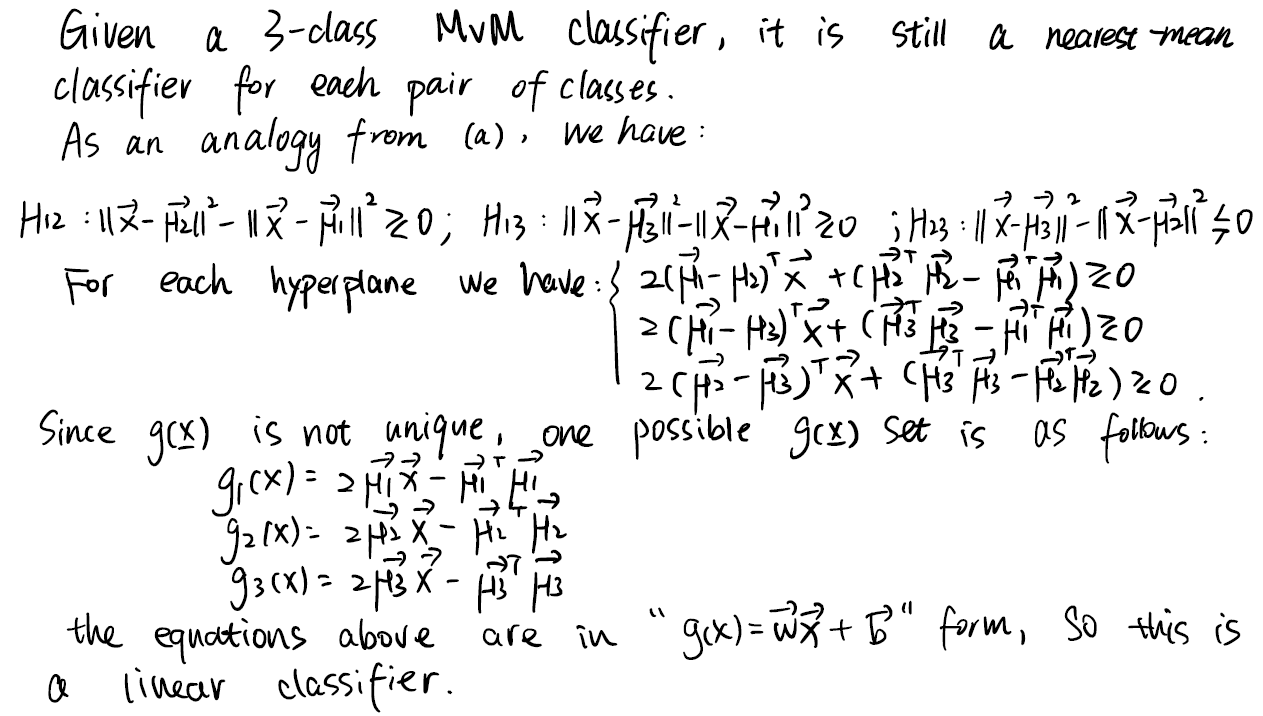 Given a 3-class MvM classifier, it is still a nearest-mean
classifier for each pair of classes.
As an analogy from (a), we have:
H₁₂ : ||x⃗ - μ⃗₂||² - ||x⃗ - μ⃗₁||² ≥ 0; H₁₃ : ||x⃗ - μ⃗₃||² - ||x⃗ - μ⃗₁||² ≥ 0 ; H₂₃ : ||x⃗ - μ⃗₃||² - ||x⃗ - μ⃗₂||² ≶ 0
For each hyperplane we have: { 2(μ⃗₁ - μ₂)ᵀx⃗ + (μ⃗₂ᵀμ⃗₂ - μ⃗₁ᵀμ⃗₁) ≥ 0
2(μ⃗₁ - μ₃)ᵀx⃗ + (μ⃗₃ᵀμ⃗₃ - μ⃗₁ᵀμ⃗₁) ≥ 0
2(μ⃗₂ - μ⃗₃)ᵀx⃗ + (μ⃗₃ᵀμ⃗₃ - μ⃗₂ᵀμ⃗₂) ≥ 0 .
Since g(x̲) is not unique, one possible g(x̲) set is as follows:
g₁(x) = 2μ⃗₁x⃗ - μ⃗₁ᵀμ⃗₁
g₂(x) = 2μ⃗₂x⃗ - μ⃗₂ᵀμ⃗₂
g₃(x) = 2μ⃗₃x⃗ - μ⃗₃ᵀμ⃗₃
the equations above are in "g(x) = w⃗x⃗ + b⃗" form, So this is
a linear classifier.